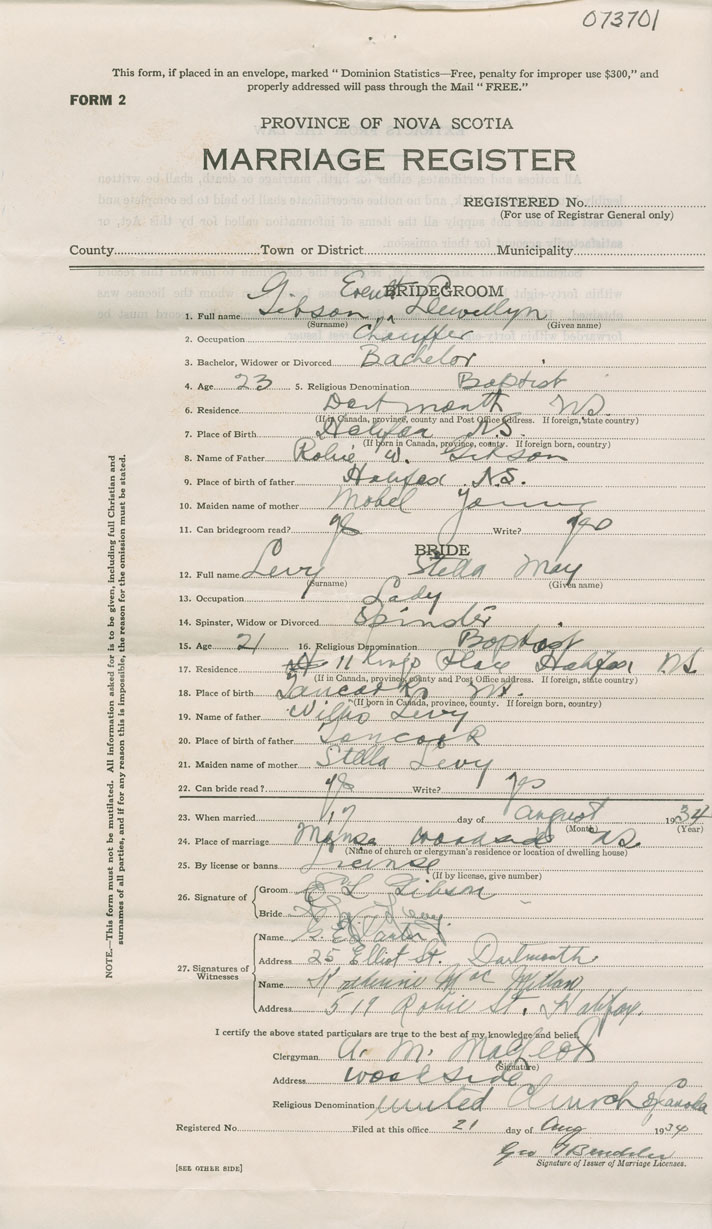 073701
This form, if placed in an envelope, marked " Dominion Statistics—Free, penalty for improper use $300," and
properly addressed will pass through the Mail " FREE."
FORM 2
PROVINCE OF NOVA SCOTIA
MARRIAGE REGISTER
REGISTERED No.
(For use of Registrar General only)
County Town or District Municipality
BRIDEGROOM
1. Full name Gibson Llewellyn
(Surname) (Given name)
2. Occupation Chauffer
3. Bachelor, Widower or Divorced Bachelor
4. Age 23 5. Religious Denomination Baptist
6. Residence Dartmouth N.S.
(If in Canada, province, county and Post Office address. If foreign, state country)
7. Place of Birth Halifax N.S.
(If born in Canada, province, county. If foreign born, county)
8. Name of Father Robie W. Gibson
9. Place of birth of father Halifax N.S.
10. Maiden name of mother Mabel Young
11. Can bridegroom read? yes Write? yes
BRIDE
12. Full name Levy Stella May
(Surname) (Given name)
13. Occupation Lady
14. Spinster, Widow or Divorced Spinster
15. Age 21 16. Religious Denomination Baptist
17. Residence 11 Kings Place Halifax NS
(If in Canada, province, county and Post Office address. If foreign, state country)
18. Place of birth Tancook N.S.
(If born in Canada, province, county. If foreign born, country)
19. Name of father Levy
20. Place of birth of father Tancook
21. Maiden name of mother Stella Levy
22. Can bride read? yes Write? yes
23. When married 17 day of August 1934
(Month) (Year)
24. Place of marriage Manse Woodside NS
(Name of church or clergyman's residence or location of dwelling house)
25. By license or banns License
(If by license, give number)
26. Signature of Groom E L Gibson
Bride Levy
27. Signatures of Witnesses
Name
Address 25 Elliot St. Dartmouth
Name Mac Millan
Address 519 Robie St. Halifax.
I certify the above stated particulars are true to the best of my knowledge and belief.
Clergyman A. M. MacLeod
(Signature)
Address Woodside
Religious Denomination United Church of Canada
Registered No. Filed at this office 21 day of Aug 1934
Geo
Signature of Issuer of Marriage Licenses.
[SEE OTHER SIDE]
NOTE.—This form must not be mutilated. All information asked for is to be given, including full Christian and
surnames of all parties, and if for any reason this is impossible, the reason for the omission must be stated.